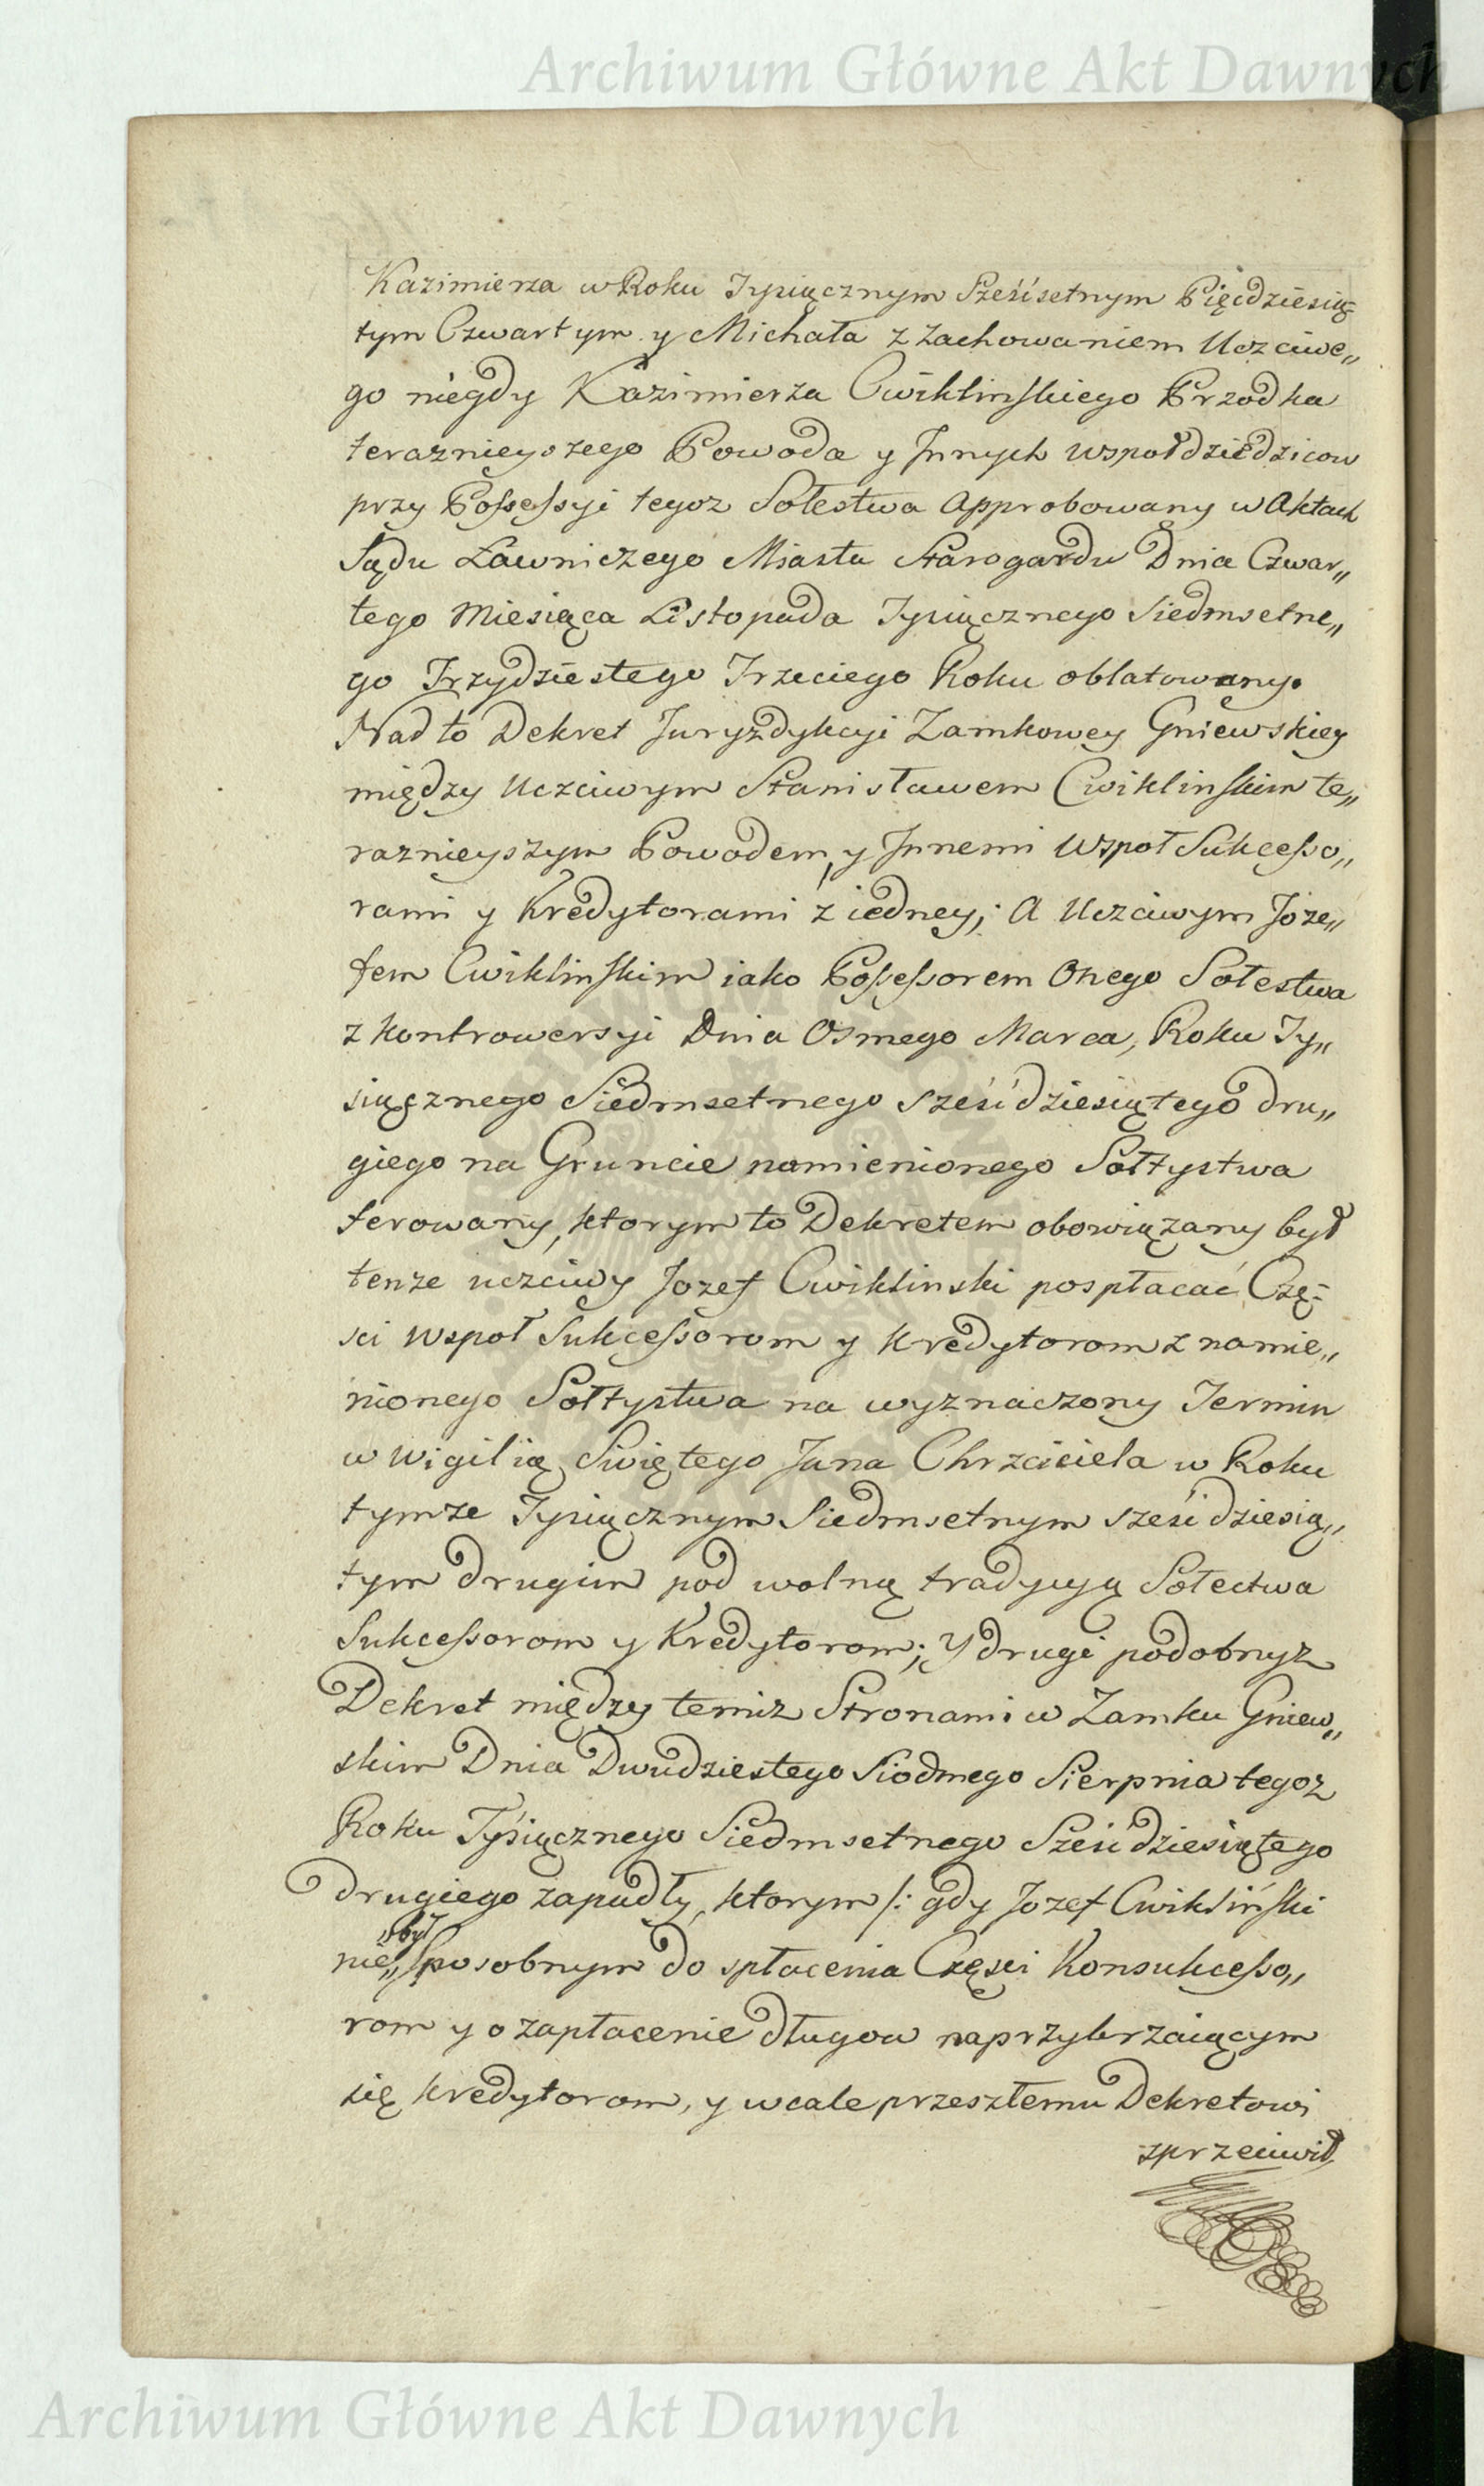 Archiwum Główne Akt Dawnych
Kazimierza w Roku Tysiącznym Sześćsetnym Pięcdziesią-
tym Czwartym y Michała z Zachowaniem Uczciwe„
go niegdy Kazimierza Cwiklinskiego Przodka
teraznieyszego Powoda y Innych Wspołdziedzicow
przy Possessyi tegoz Sołestwa Approbowany w Aktach
Sądu Ławniczego Miasta Starogardu Dnia Czwar„
tego Miesiąca Listopada Tysiącznego Siedmsetne„
go Trzydziestego Trzeciego Roku oblatowany.
Nad to Dekret Juryzdykcyi Zamkowey Gniewskiey
między Uczciwym Stanisławem Cwiklinskim te„
raznieyszym Powodem, y Innemi Wspoł Sukcesso„
rami y Kredytorami z iedney; A Uczciwym Joze„
fem Cwiklinskim iako Possessorem Onego Sołestwa
z kontrowersyi Dnia Osmego Marca, Roku Ty„
siącznego Siedmsetnego sześćdziesiątego dru„
giego na Gruncie namienionego Sołtystwa
ferowany, ktorym to Dekretem obowiązany był
tenze uczciwy Jozef Cwiklinski pospłacać Czę-
sci Wspoł Sukcessorom y kredytorom z namie„
nionego Sołtystwa na wyznaczony Termin
w Wigilią Swiętego Jana Chrzciciela w Roku
tymze Tysiącznym Siedmsetnym sześćdziesią„
tym drugim pod wolną tradycyą Sołectwa
Sukcessorom y Kredytorom; Y drugi podobnyz
Dekret między temiz Stronami w Zamku Gniew„
skim Dnia Dwudziestego Siodmego Sierpnia tegoz
Roku Tysiącznego Siedmsetnego Sześćdziesiątego
drugiego zapadły, ktorym /: gdy Jozef Cwikliński
był
nie„ sposobnym do spłacenia Częsci Konsukcesso„
rom y o zapłacenie długow naprzykrzaiącym
się kredytorom, y wcale przeszłemu Dekretowi
zprzeciwił
Archiwum Główne Akt Dawnych